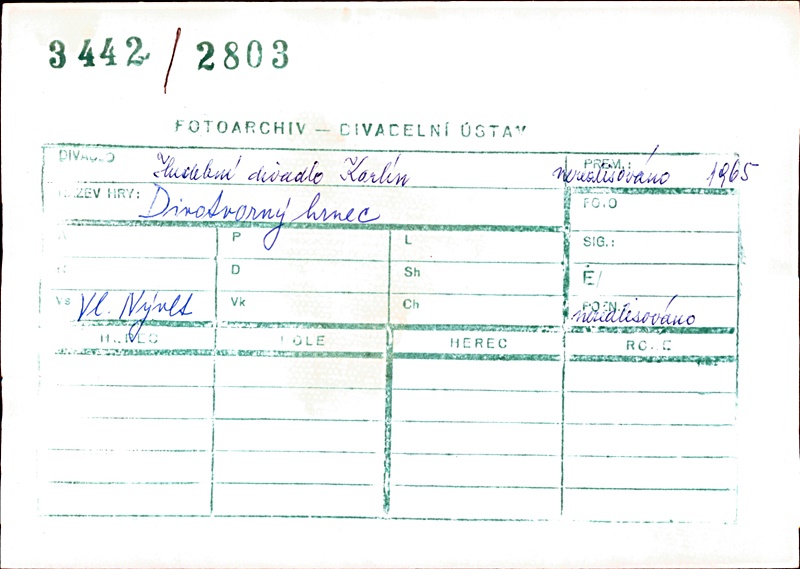 3442 / 2803
FOTOARCHIV — DIVADELNÍ ÚSTAV
DIVADLO Hudební divadlo Karlín PREM.: nerealisováno 1965
NÁZEV HRY: Divotvorný hrnec FOTO
P L SIG.:
D Sh Ė/
Vs Vl. Nývlt Vk Ch POZN. nerealisováno
HEREC ROLE HEREC ROLE